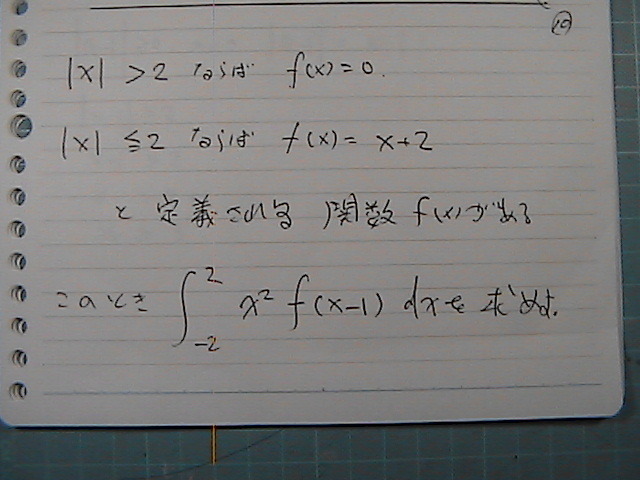 ⑲
|x| > 2 ならば f(x) = 0.
|x| ≦ 2 ならば f(x) = x+2
と 定義される 関数 f(x)がある
このとき ∫_{-2}^{2} x² f(x-1) dxを 求めよ.